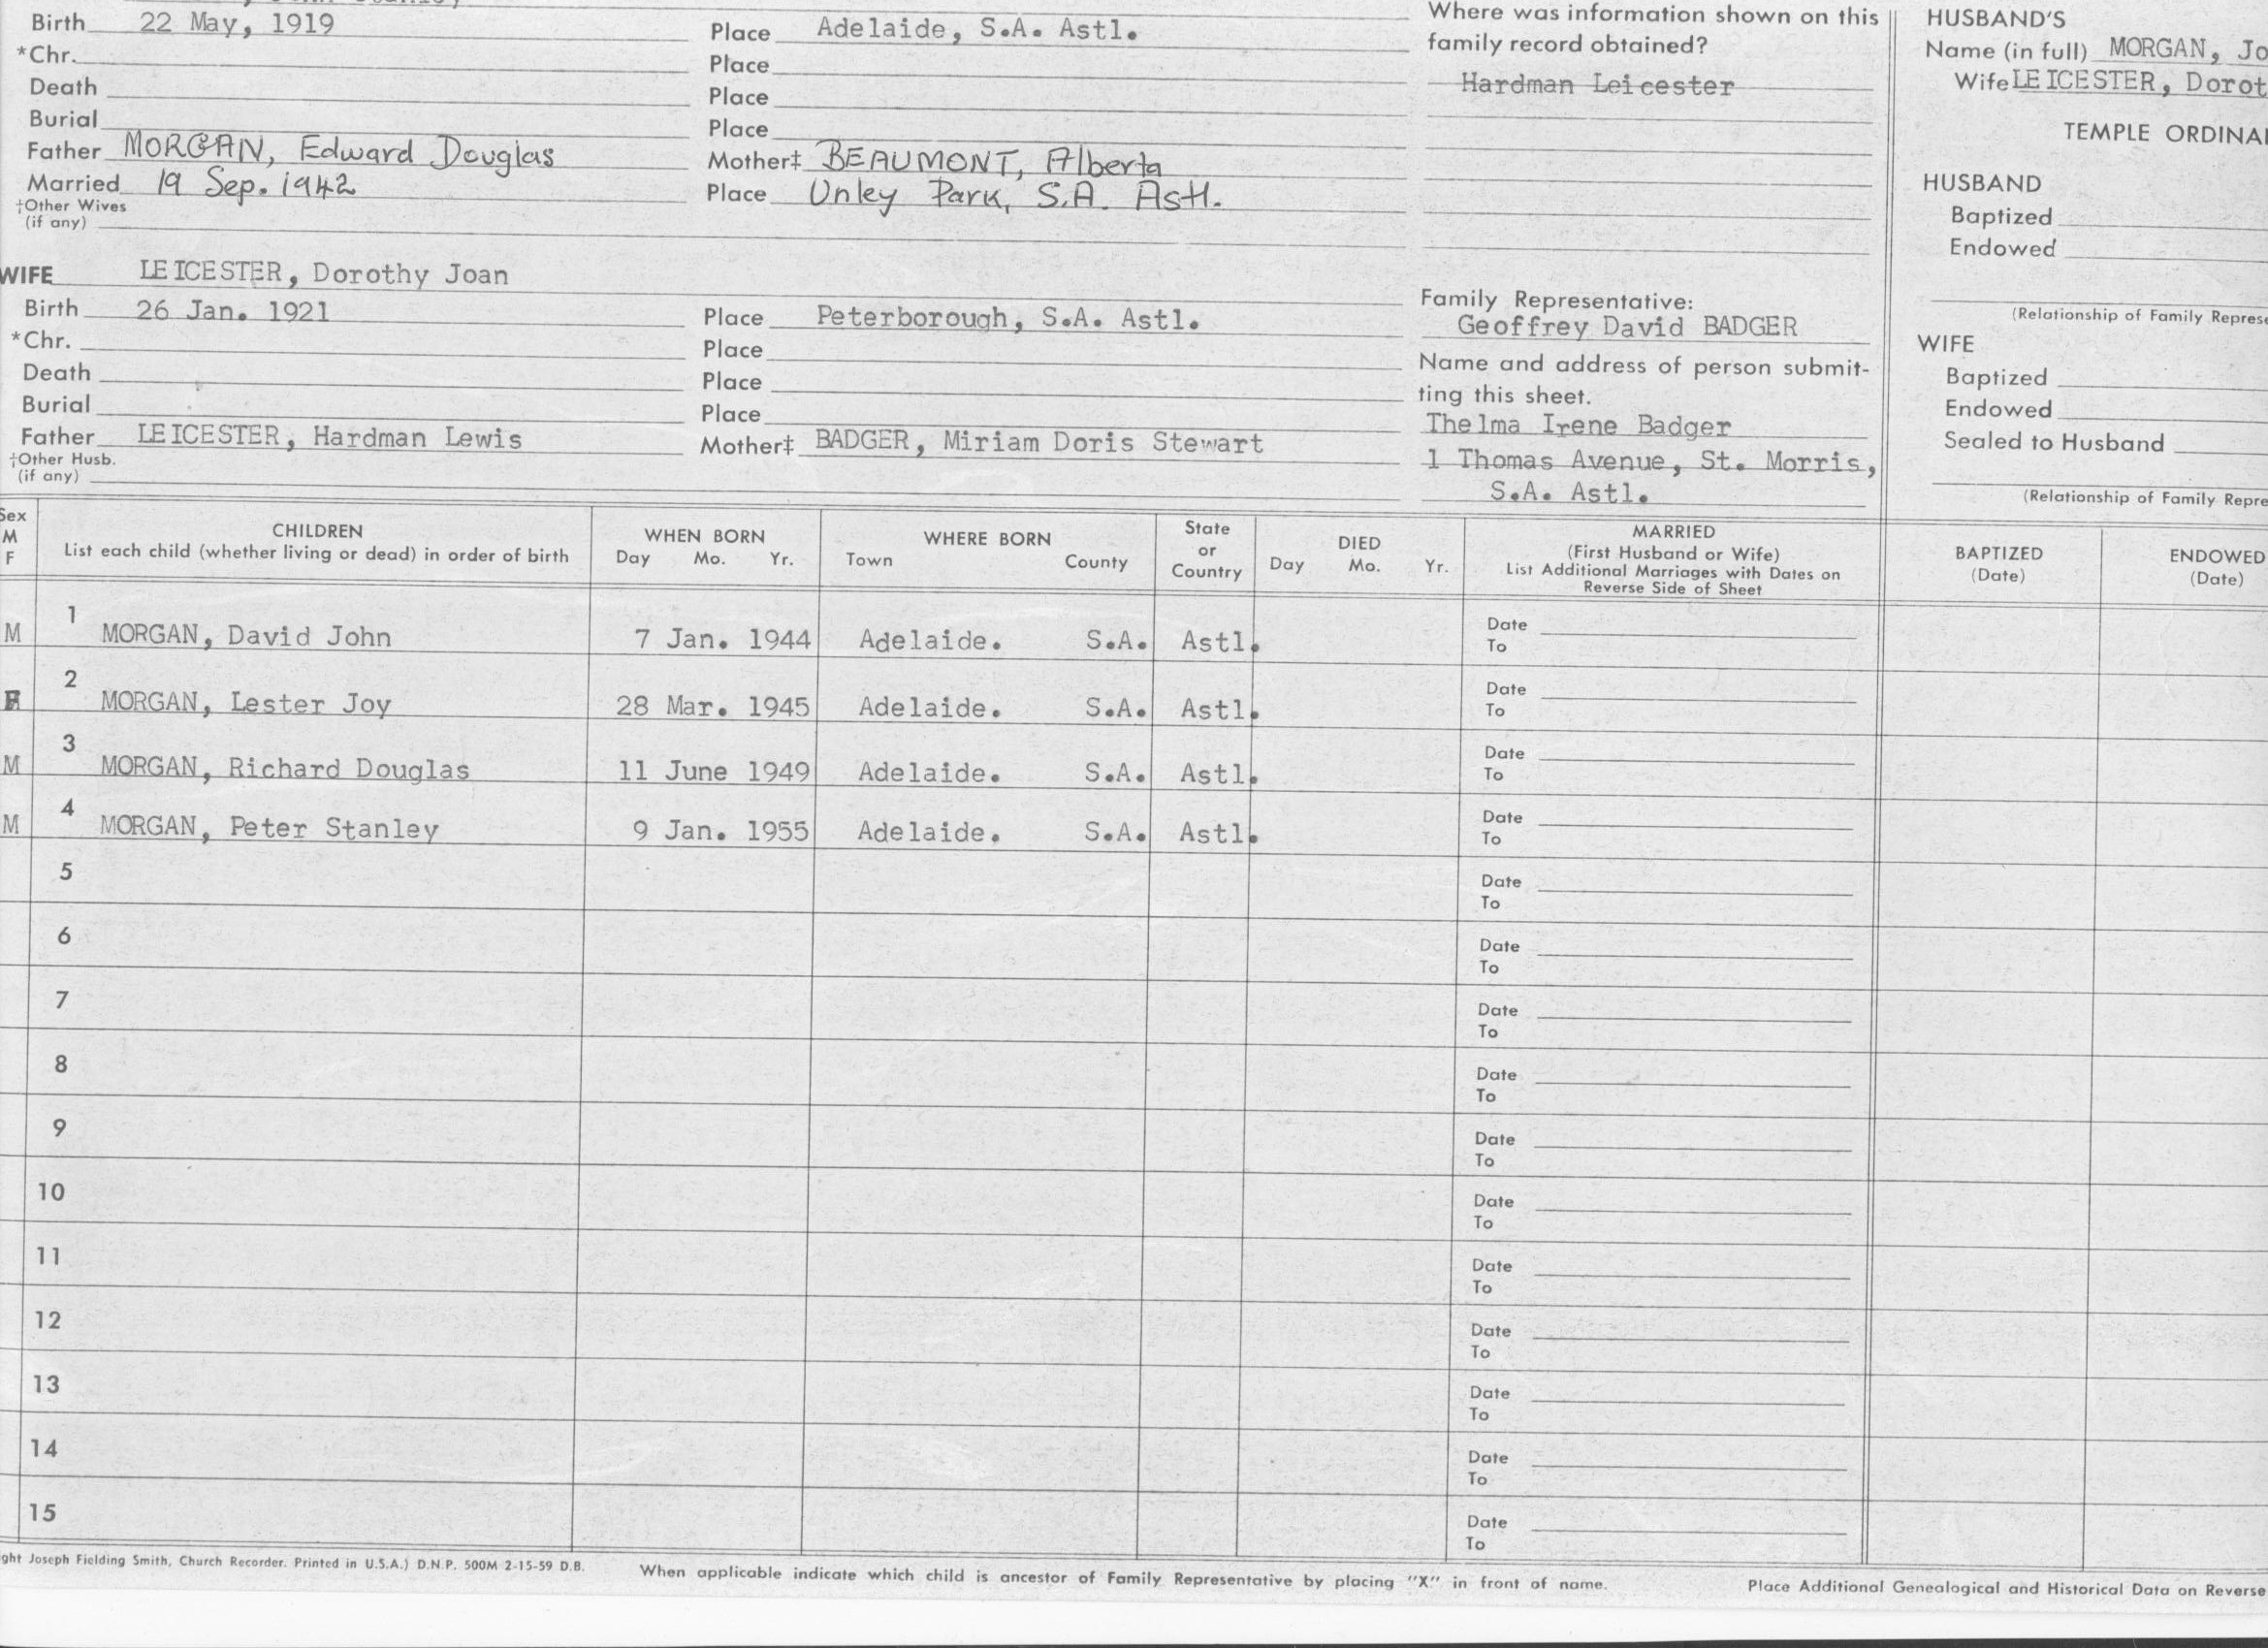 Birth 22 May, 1919 Place Adelaide, S.A. Astl.
*Chr. Place
Death Place
Burial Place
Father MORGAN, Edward Douglas Mother‡ BEAUMONT, Alberta
Married 19 Sep. 1942 Place Unley Park, S.A. Astl.
†Other Wives
(if any)
WIFE LEICESTER, Dorothy Joan
Birth 26 Jan. 1921 Place Peterborough, S.A. Astl.
*Chr. Place
Death Place
Burial Place
Father LEICESTER, Hardman Lewis Mother‡ BADGER, Miriam Doris Stewart
†Other Husb.
(if any)
Where was information shown on this
family record obtained?
Hardman Leicester
Family Representative:
Geoffrey David BADGER
Name and address of person submit-
ting this sheet.
Thelma Irene Badger
1 Thomas Avenue, St. Morris,
S.A. Astl.
HUSBAND'S
Name (in full) MORGAN, Jo
Wife LEICESTER, Dorot
TEMPLE ORDINA
HUSBAND
Baptized
Endowed
(Relationship of Family Represe
WIFE
Baptized
Endowed
Sealed to Husband
(Relationship of Family Repre
Sex
M
F
CHILDREN
List each child (whether living or dead) in order of birth
WHEN BORN
Day Mo. Yr.
WHERE BORN
Town County
State
or
Country
DIED
Day Mo. Yr.
MARRIED
(First Husband or Wife)
List Additional Marriages with Dates on
Reverse Side of Sheet
BAPTIZED
(Date)
ENDOWED
(Date)
1 Date
M MORGAN, David John 7 Jan. 1944 Adelaide. S.A. Astl. To
2 Date
F MORGAN, Lester Joy 28 Mar. 1945 Adelaide. S.A. Astl. To
3 Date
M MORGAN, Richard Douglas 11 June 1949 Adelaide. S.A. Astl. To
4 Date
M MORGAN, Peter Stanley 9 Jan. 1955 Adelaide. S.A. Astl. To
5 Date
To
6 Date
To
7 Date
To
8 Date
To
9 Date
To
10 Date
To
11 Date
To
12 Date
To
13 Date
To
14 Date
To
15 Date
To
ght Joseph Fielding Smith, Church Recorder. Printed in U.S.A.) D.N.P. 500M 2-15-59 D.B. When applicable indicate which child is ancestor of Family Representative by placing "X" in front of name. Place Additional Genealogical and Historical Data on Reverse